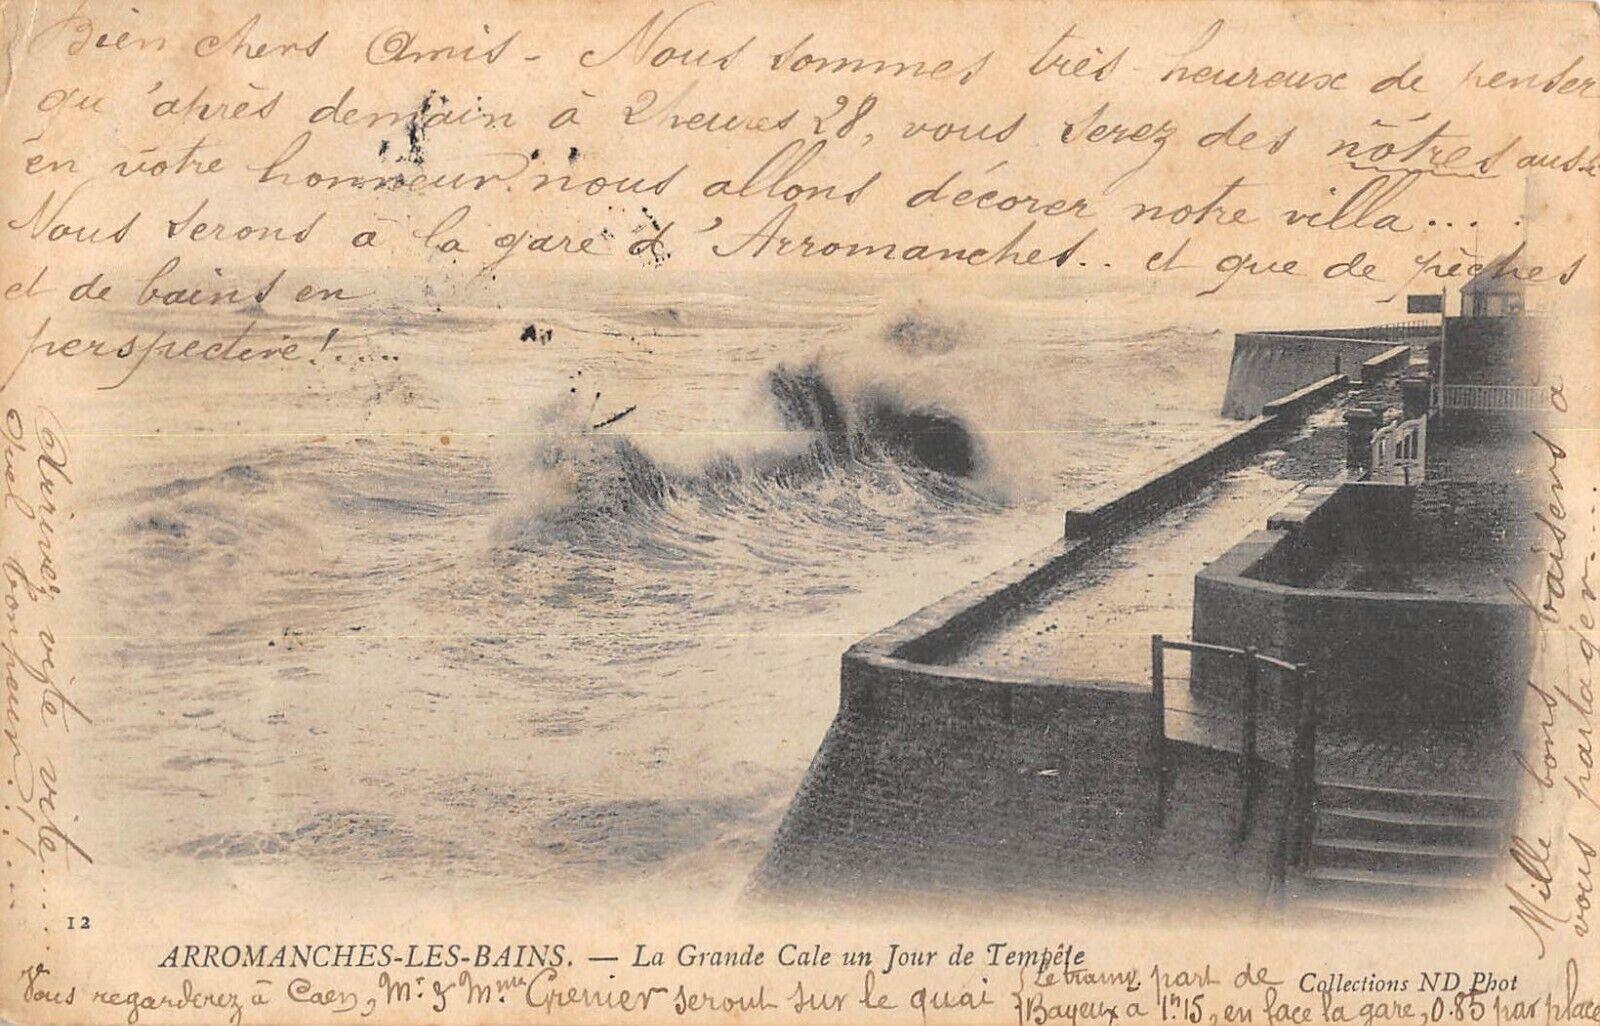 Bien chers Amis - Nous sommes très heureux de penser
qu'après demain à 2 heures 28, vous serez des nôtres aussi
en votre honneur nous allons décorer notre villa....
Nous serons à la gare d'Arromanches.. et que de pêches
et de bains en
perspective!....
Arrivez vite vite....
Quel bonheur!!...
Mille bons baisers à
vous partager....
12
ARROMANCHES-LES-BAINS. — La Grande Cale un Jour de Tempête
Collections ND Phot
Vous regarderez à Caen, Mr & Mme Grenier seront sur le quai
Le tramw part de
Bayeux à 1h15, en face la gare, 0.85 par place